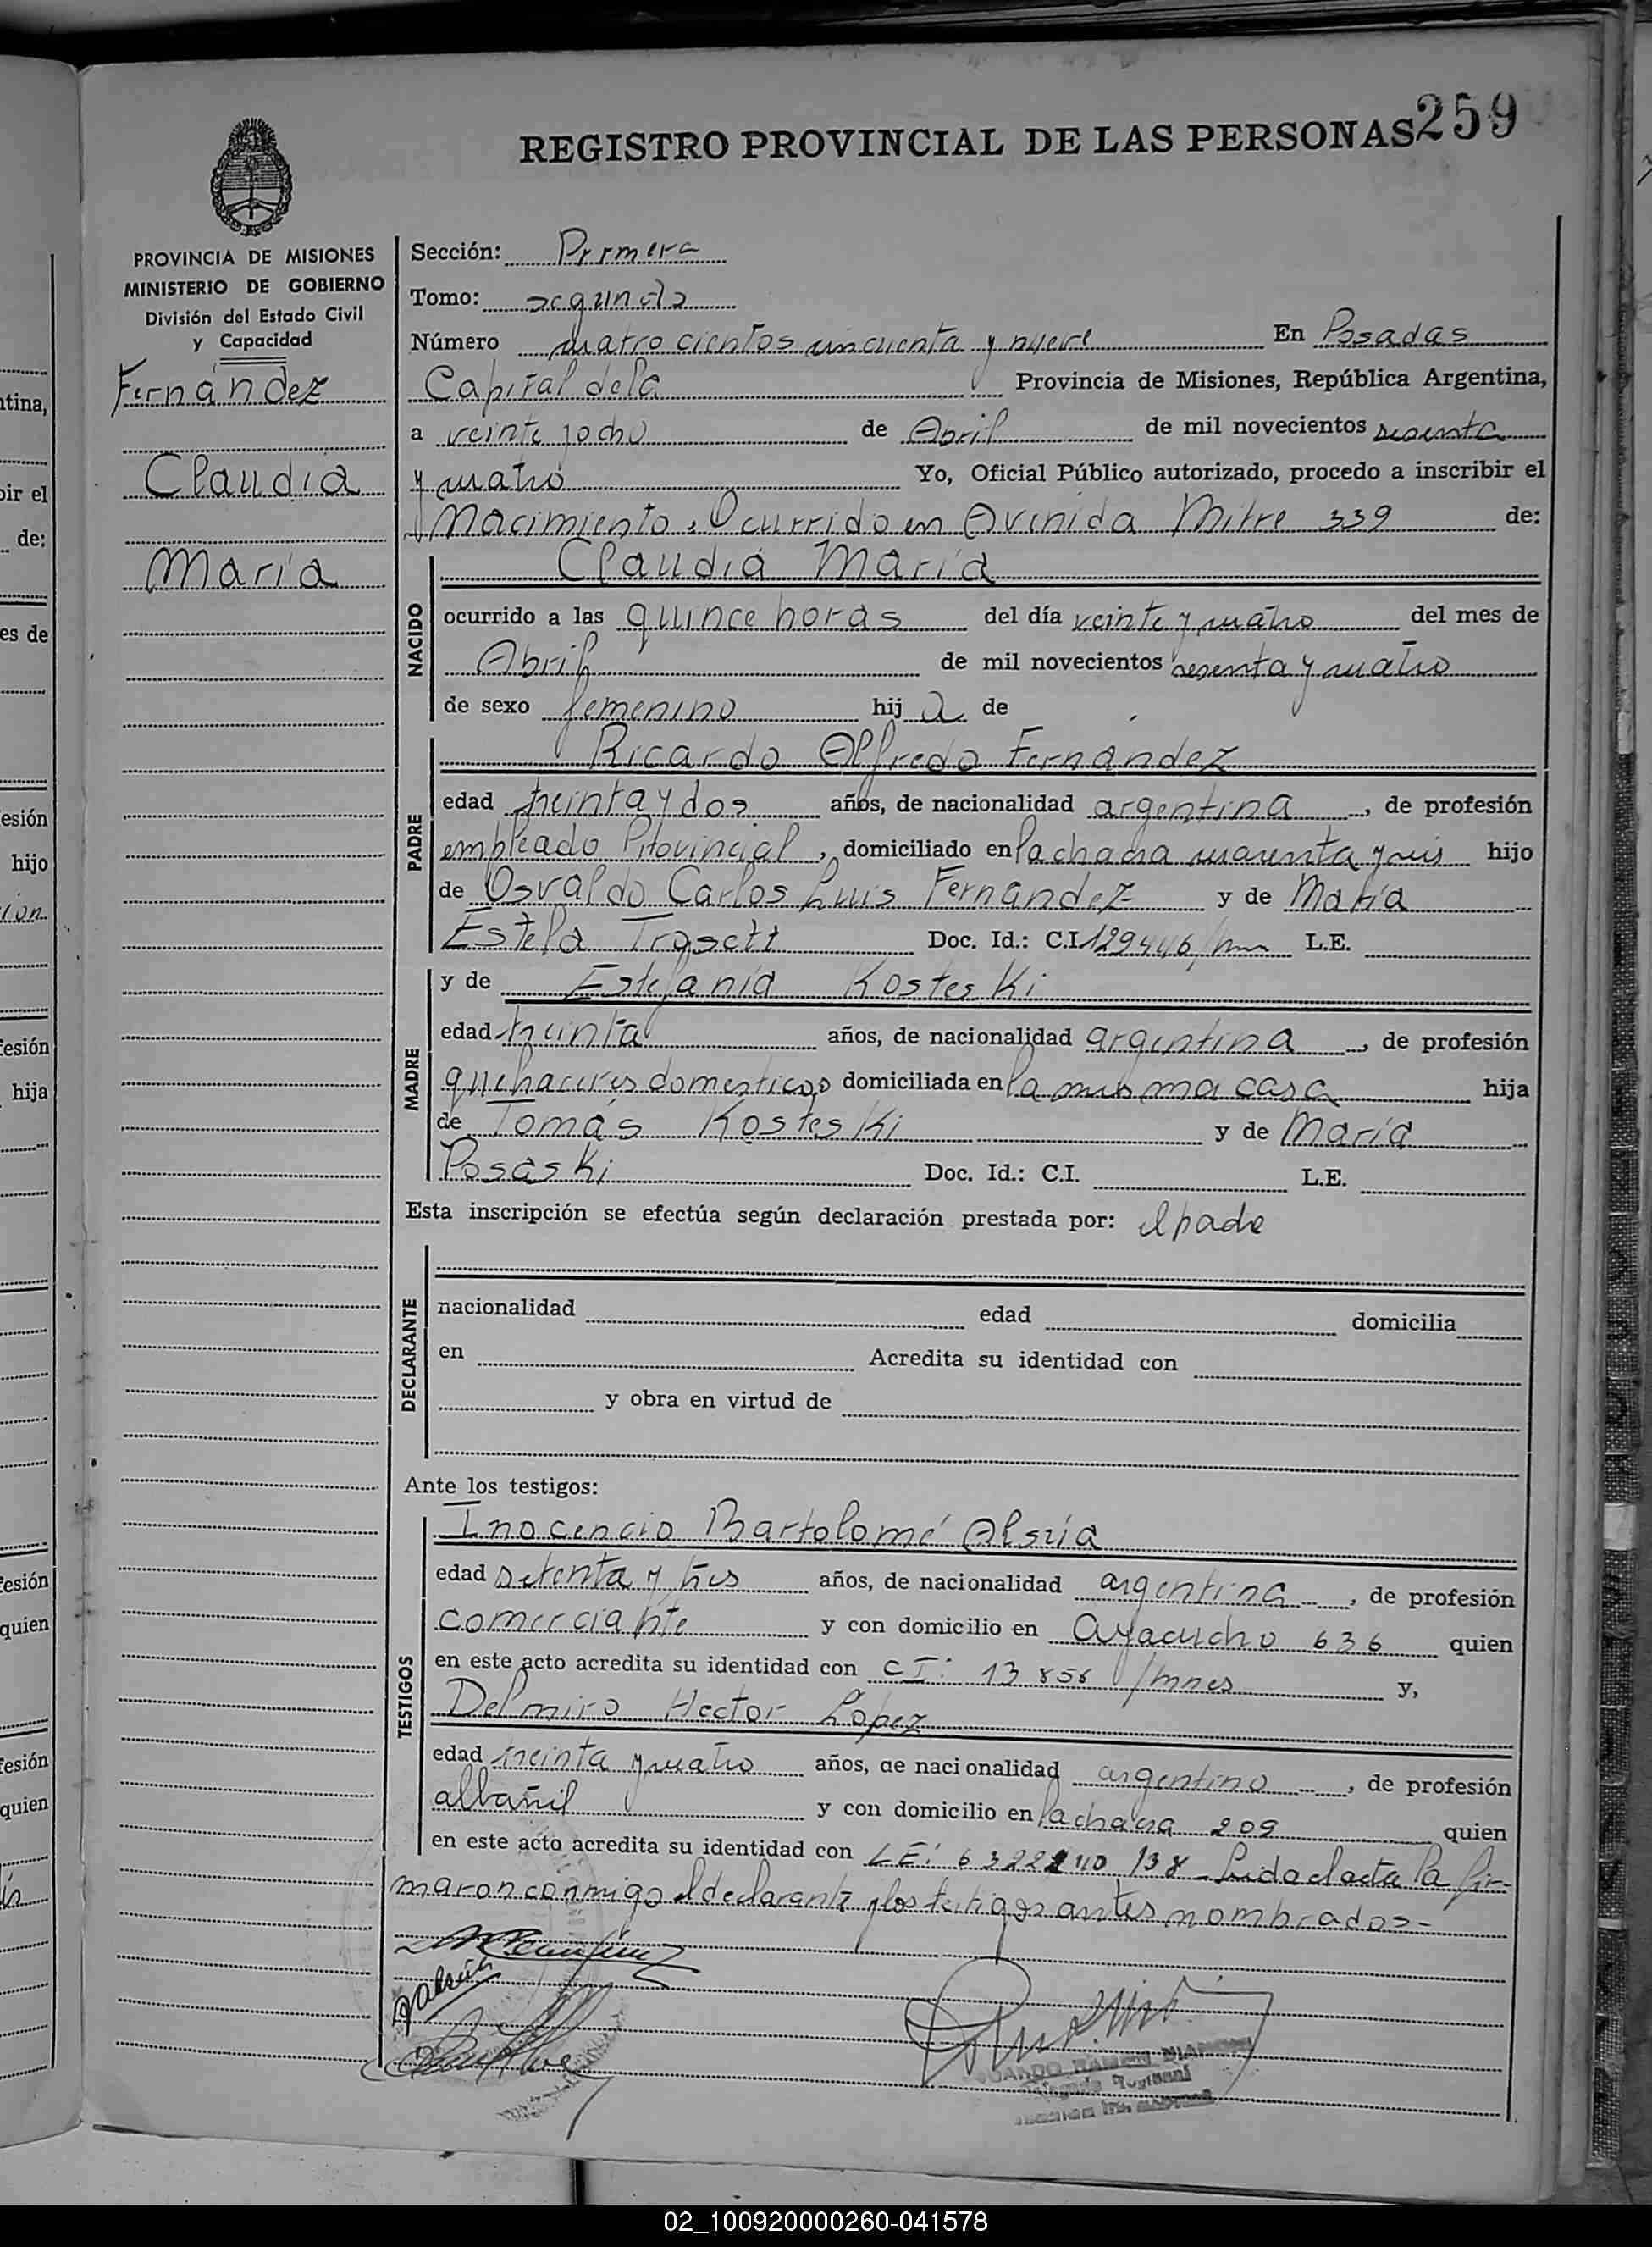 259
REGISTRO PROVINCIAL DE LAS PERSONAS
PROVINCIA DE MISIONES
MINISTERIO DE GOBIERNO
División del Estado Civil
y Capacidad
Fernández
Claudia
María
Sección: Primera
Tomo: segundo
Número cuatrocientos cincuenta y nueve En Posadas
Capital de la Provincia de Misiones, República Argentina,
a veinte y ocho de Abril de mil novecientos sesenta
y cuatro Yo, Oficial Público autorizado, procedo a inscribir el
Nacimiento, Ocurrido en Avenida Mitre 339 de:
NACIDO
Claudia María
ocurrido a las quince horas del día veinte y cuatro del mes de
Abril de mil novecientos sesenta y cuatro
de sexo femenino hij a de
PADRE
Ricardo Alfredo Fernández
edad treinta y dos años, de nacionalidad argentina, de profesión
empleado Provincial, domiciliado en la chacra cuarenta y seis hijo
de Osvaldo Carlos Luis Fernández y de María
Estela Doc. Id.: C.I. 129446/mn L.E.
MADRE
y de Estefanía Kosteski
edad treinta años, de nacionalidad argentina, de profesión
quehaceres domesticos domiciliada en la misma casa hija
de Tomás Kosteski y de María
Posaski Doc. Id.: C.I. L.E.
Esta inscripción se efectúa según declaración prestada por: el padre
DECLARANTE
nacionalidad edad domicilia
en Acredita su identidad con
y obra en virtud de
Ante los testigos:
TESTIGOS
Inocencio Bartolomé Alsúa
edad setenta y tres años, de nacionalidad argentina, de profesión
comerciante y con domicilio en Ayacucho 636 quien
en este acto acredita su identidad con CI: 13856/mnes y,
Delmiro Hector López
edad treinta y cuatro años, de nacionalidad argentino, de profesión
albañil y con domicilio en la chacra 209 quien
en este acto acredita su identidad con LE: Leída el acta la fir-
maron conmigo el declarante y los testigos antes nombrados-
RAMON
02_100920000260-041578